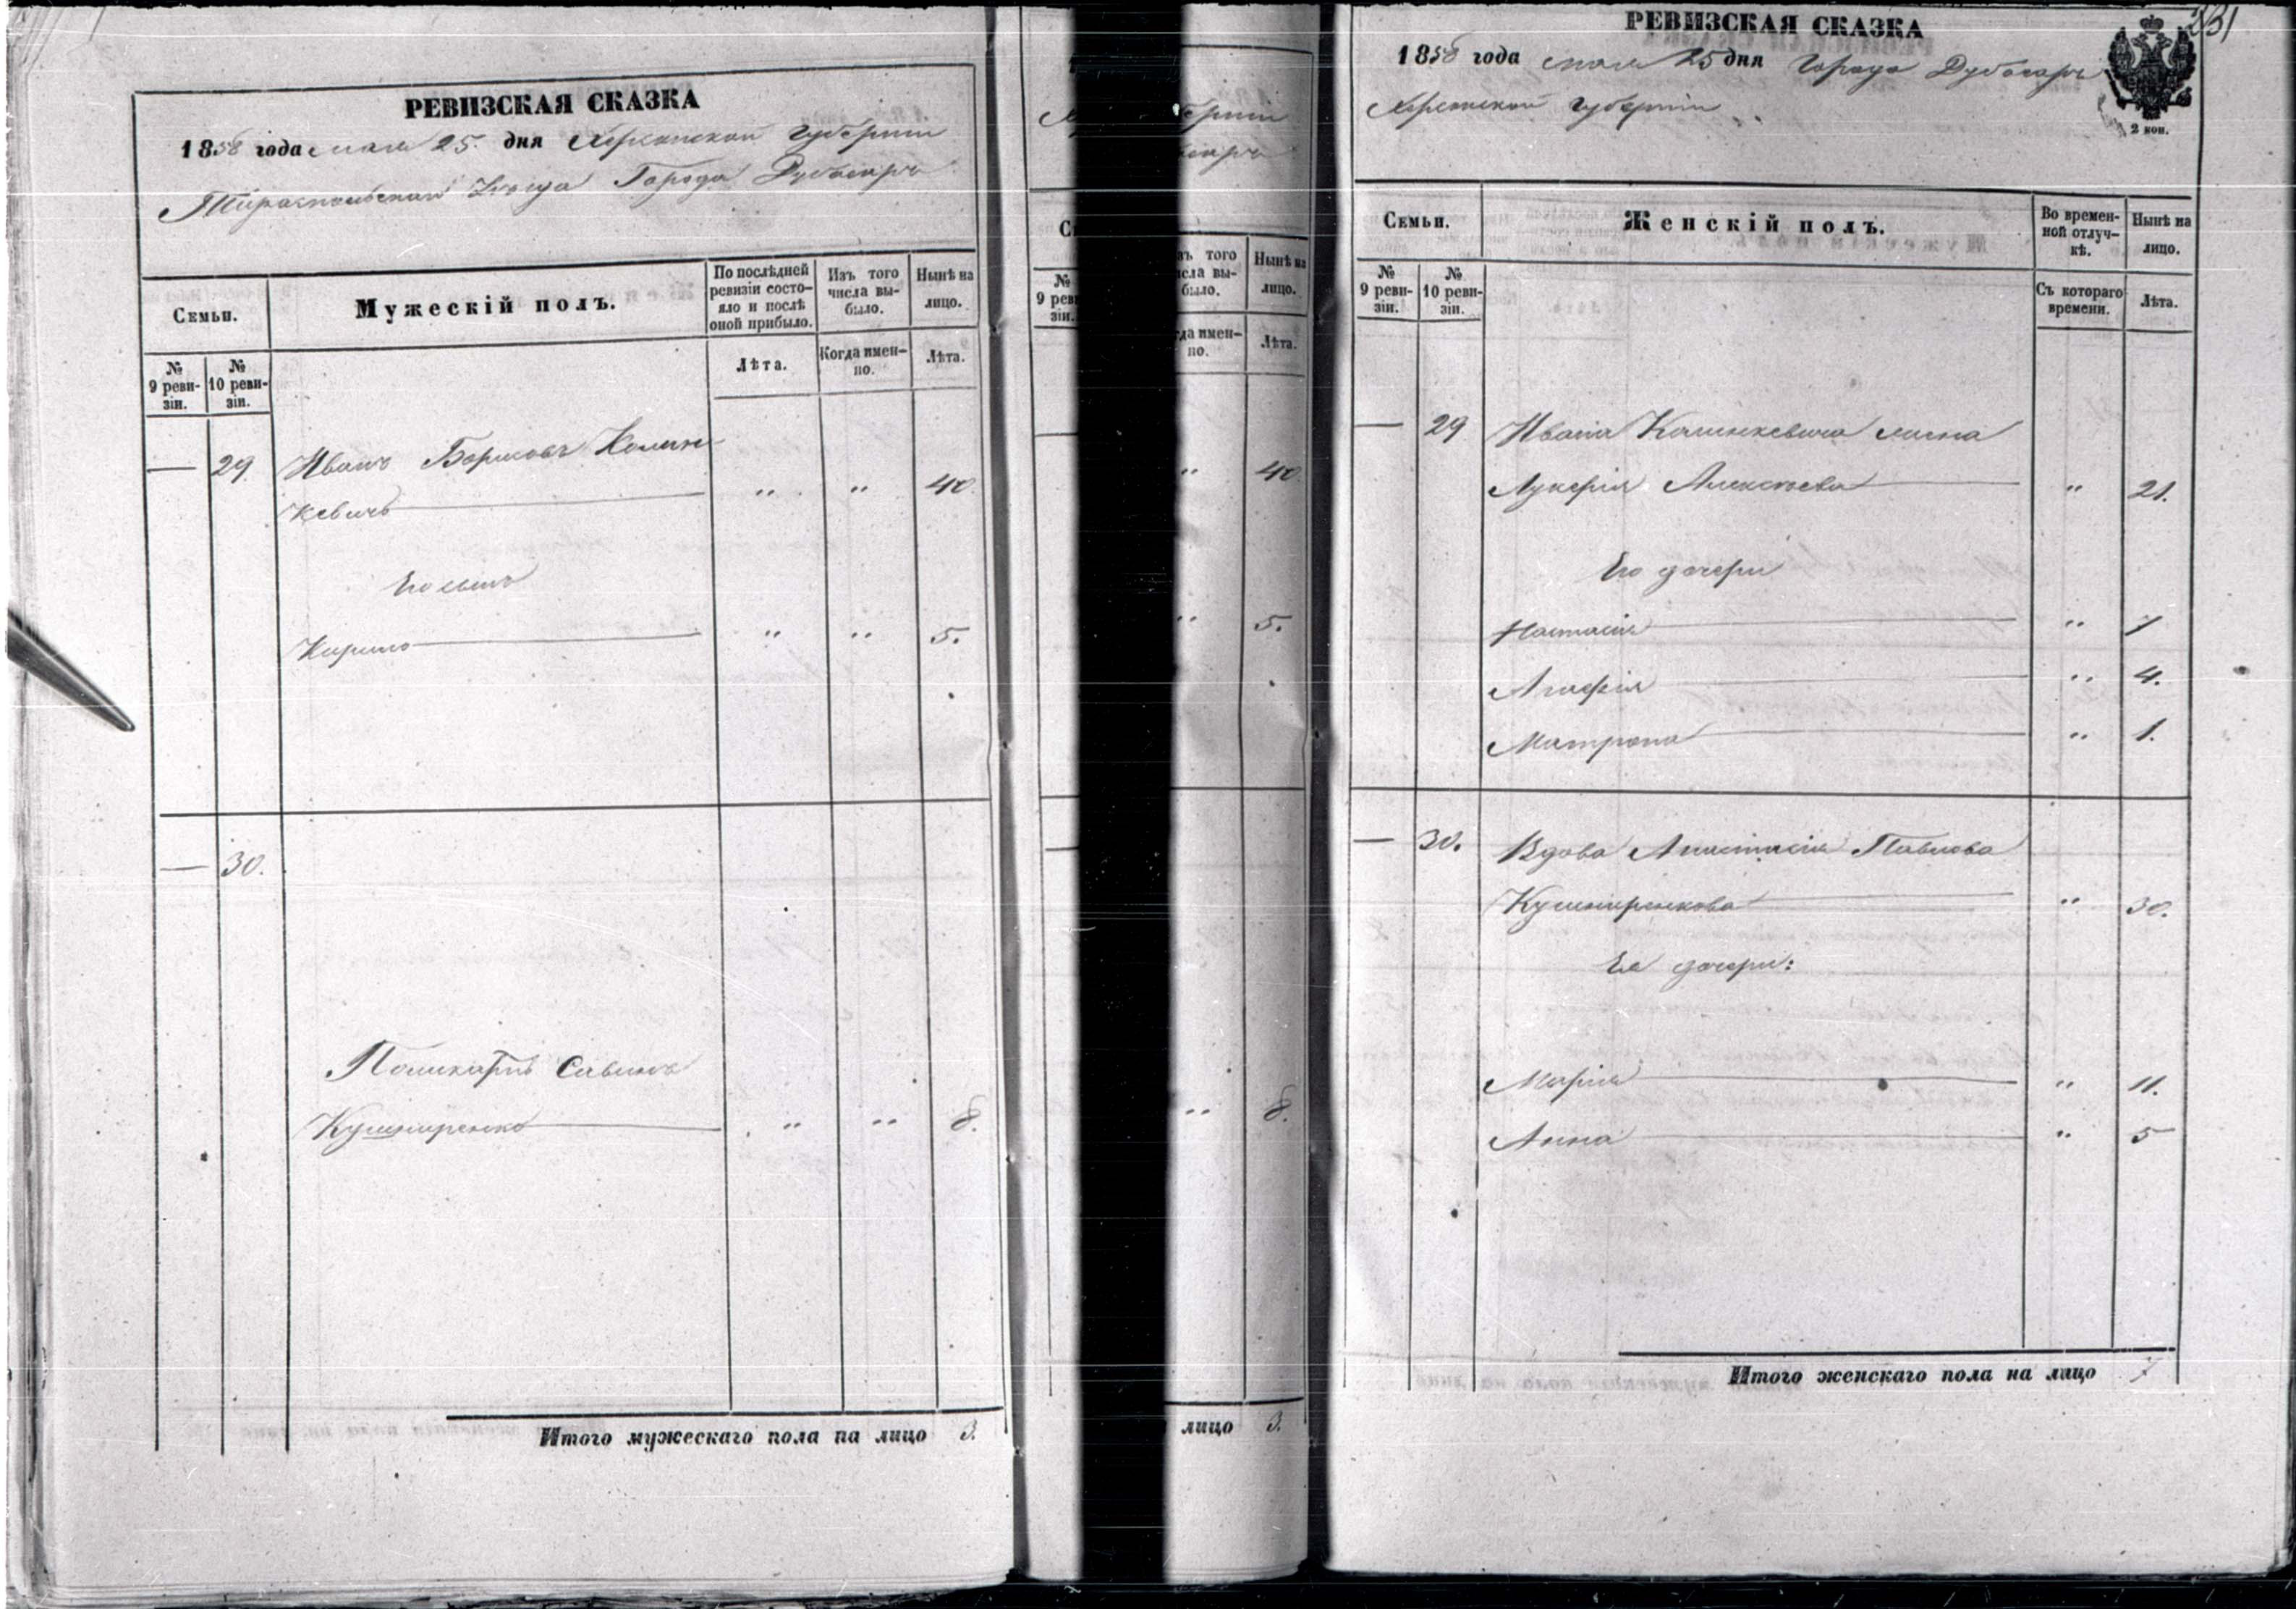 РЕВИЗСКАЯ СКАЗКА
1858 года мая 25. дня Херсонской губернии
Тираспольскаго Уезда Города Дубосаръ
Семьи.
Мужескій полъ.
По послѣдней ревизіи состо-
яло и послѣ
оной прибыло.
Изъ того
числа вы-
было.
Нынѣ на
лицо.
№
9 реви-
зіи.
№
10 реви-
зіи.
Лѣта.
Когда имен-
но.
Лѣта.
— 29. Иванъ Борисовъ Калин-
кевичъ " " 40.
Его сынъ
Кирило " " 5.
— 30.
Поликарпъ Савинъ
Кушниренко " " 8.
Итого мужескаго пола на лицо 3.
ерніи
С
№
9 реви
зіи.
зъ того
исла вы-
было.
Нынѣ на
лицо.
да имен-
но.
Лѣта.
" 40
" 5.
" 8.
лицо 3.
231
РЕВИЗСКАЯ СКАЗКА
1858 года мая 25 дня Города Дубосаръ
Херсонской Губерніи
2 коп.
Семьи.
Женскій полъ.
Во времен-
ной отлуч-
кѣ.
Нынѣ на
лицо.
№
9 реви-
зіи.
№
10 реви-
зіи.
Съ котораго
времени.
Лѣта.
— 29 Ивана Калинкевича жена
Лукерія Алексѣева " 21.
Его дочери
Настасія " 7
Агафія " 4.
Матрона " 1.
— 30. Вдова Анастасія Павлова
Кушниренкова " 30.
Ея дочери:
Марія " 11.
Анна " 5
Итого женскаго пола на лицо 7